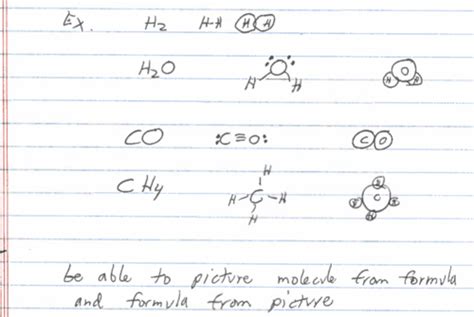 Ex. H₂ H-H H H
H₂O H O H H O H
CO :C≡O: C O
CH₄ H H-C-H H C
be able to picture molecule from formula
and formula from picture